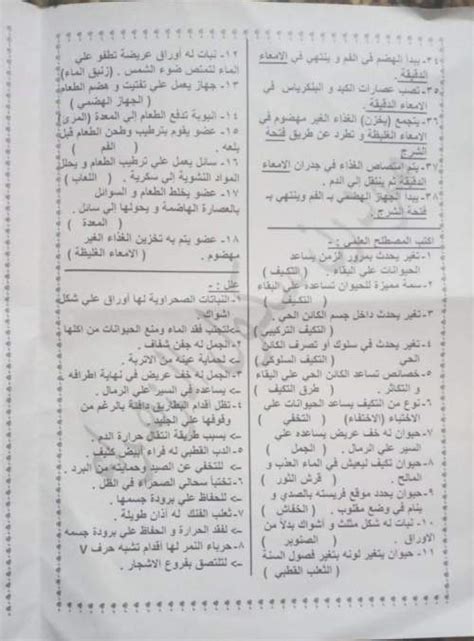 ٣٤- يبدأ الهضم في الفم و ينتهي في الامعاء
الدقيقة .
٣٥- تصب عصارات الكبد و البنكرياس في
الامعاء الدقيقة .
٣٦- يتجمع (يخزن) الغذاء الغير مهضوم في
الامعاء الغليظة و تطرد عن طريق فتحة
الشرج
٣٧- يتم امتصاص الغذاء في جدران الامعاء
الدقيقة ثم ينتقل إلي الدم .
٣٨- يبدأ الجهاز الهضمي بـ الفم وينتهي بـ
فتحة الشرج .
اكتب المصطلح العلمي :-
١- تغير يحدث بمرور الزمن يساعد
الحيوانات علي البقاء ( التكيف )
٢- سمة مميزة للحيوان تساعده علي البقاء
( التكيف )
٣- تغير يحدث داخل جسم الكائن الحي
( التكيف التركيبي )
٤- تغير يحدث في سلوك أو تصرف الكائن
الحي ( التكيف السلوكي )
٥- خصائص تساعد الكائن الحي علي البقاء
و التكاثر . ( طرق التكيف )
٦- نوع من التكيف يساعد الحيوانات علي
الاختباء (الاختفاء) ( التخفي )
٧- حيوان له خف عريض يساعده علي
السير علي الرمال . ( الجمل )
٨- حيوان تكيف ليعيش في الماء العذب و
المالح . ( قرش الثور )
٩- حيوان يحدد موقع فريسته بالصدي و
ينام في وضع مقلوب . ( الخفاش )
١٠- نبات له شكل مثلث و أشواك بدلاً من
الاوراق . ( الصنوبر )
١١- حيوان يتغير لونه بتغير فصول السنة
( الثعلب القطبي )
١٢- نبات له أوراق عريضة تطفو علي
الماء لتمتص ضوء الشمس . (زنبق الماء)
١٣- جهاز يعمل علي تفتيت و هضم الطعام
( الجهاز الهضمي )
١٤- انبوبة تدفع الطعام إلي المعدة (المرئ)
١٥- عضو يقوم بترطيب وطحن الطعام قبل
بلعه . ( الفم )
١٦- سائل يعمل علي ترطيب الطعام و يحلل
المواد النشوية إلي سكرية . ( اللعاب )
١٧- عضو يخلط الطعام و السوائل
بالعصارة الهاضمة و يحولها إلي سائل .
( المعدة )
١٨- عضو يتم به تخزين الغذاء الغير
مهضوم . ( الامعاء الغليظة )
علل :-
١- النباتات الصحراوية لها أوراق علي شكل
اشواك .
<- لتجنب فقد الماء ومنع الحيوانات من اكلها
٢- الجمل له جفن شفاف .
<- لحماية عينه من الاتربة .
٣- الجمل له خف عريض في نهاية اطرافه .
<- يساعده في السير علي الرمال .
٤- تظل أقدام البطاريق دافئة بالرغم من
وقوفها علي الجليد .
<- بسبب طريقة انتقال حرارة الدم .
٥- الدب القطبي له فراء أبيض كثيف .
<- للتخفي عن الصيد وحمايته من البرد .
٦- تختبأ سحالي الصحراء في الظل .
<- للحفاظ علي برودة جسمها .
٧- ثعلب الفنك له أذان طويلة .
<- لفقد الحرارة و الحفاظ علي برودة جسمه
٨- حرباء النمر لها أقدام تشبه حرف V
<- لتلتصق بفروع الاشجار .